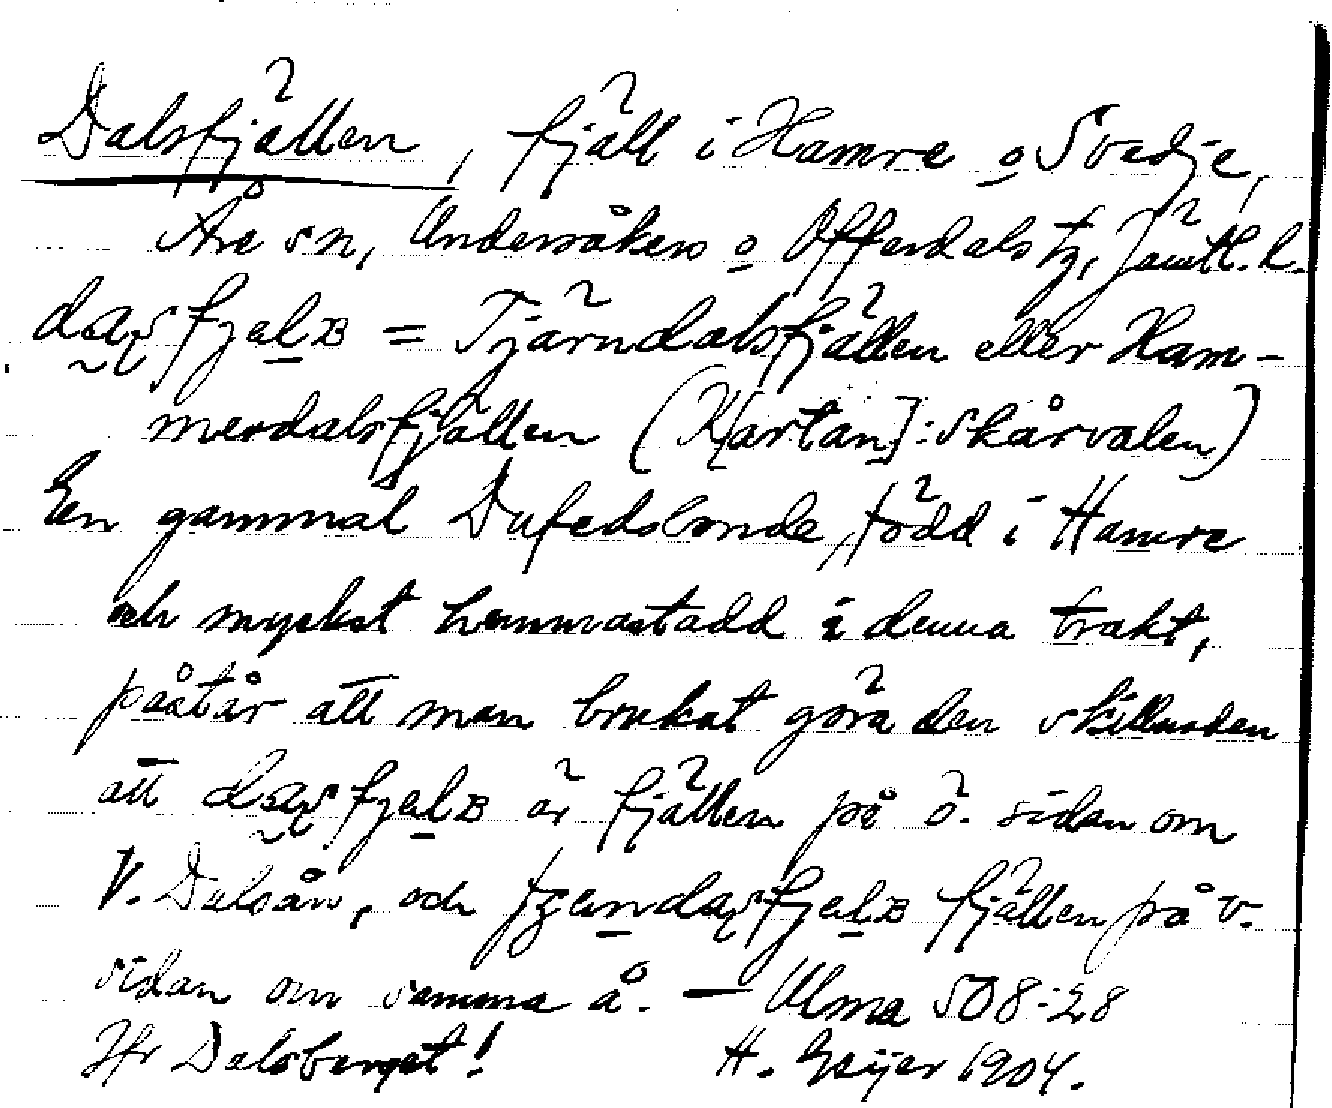 Dalsfjällen, fjäll i Hamre o Svedje,
Åre sn, Undersåkers o Offerdals tg, Jämtl. l.
= Tjärndalsfjällen eller Ham-
merdalsfjällen (K[artan]: Skårvalen)
En gammal Dufedsbonde, född i Hamre
och mycket hemmastadd i denna trakt,
påstår att man brukat göra den skillnaden
att är fjällen på ö. sidan om
V. Dalsån, och fjällen på v.
sidan om samma å. — Ulma 508:28
Jfr Dalsberget! H. Geijer 1904.